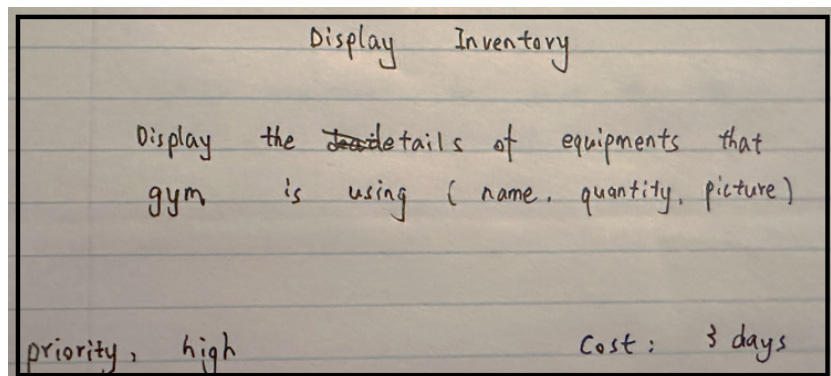 Display Inventory
Display the details of equipments that
gym is using ( name, quantity, picture )
priority, high
Cost : 3 days